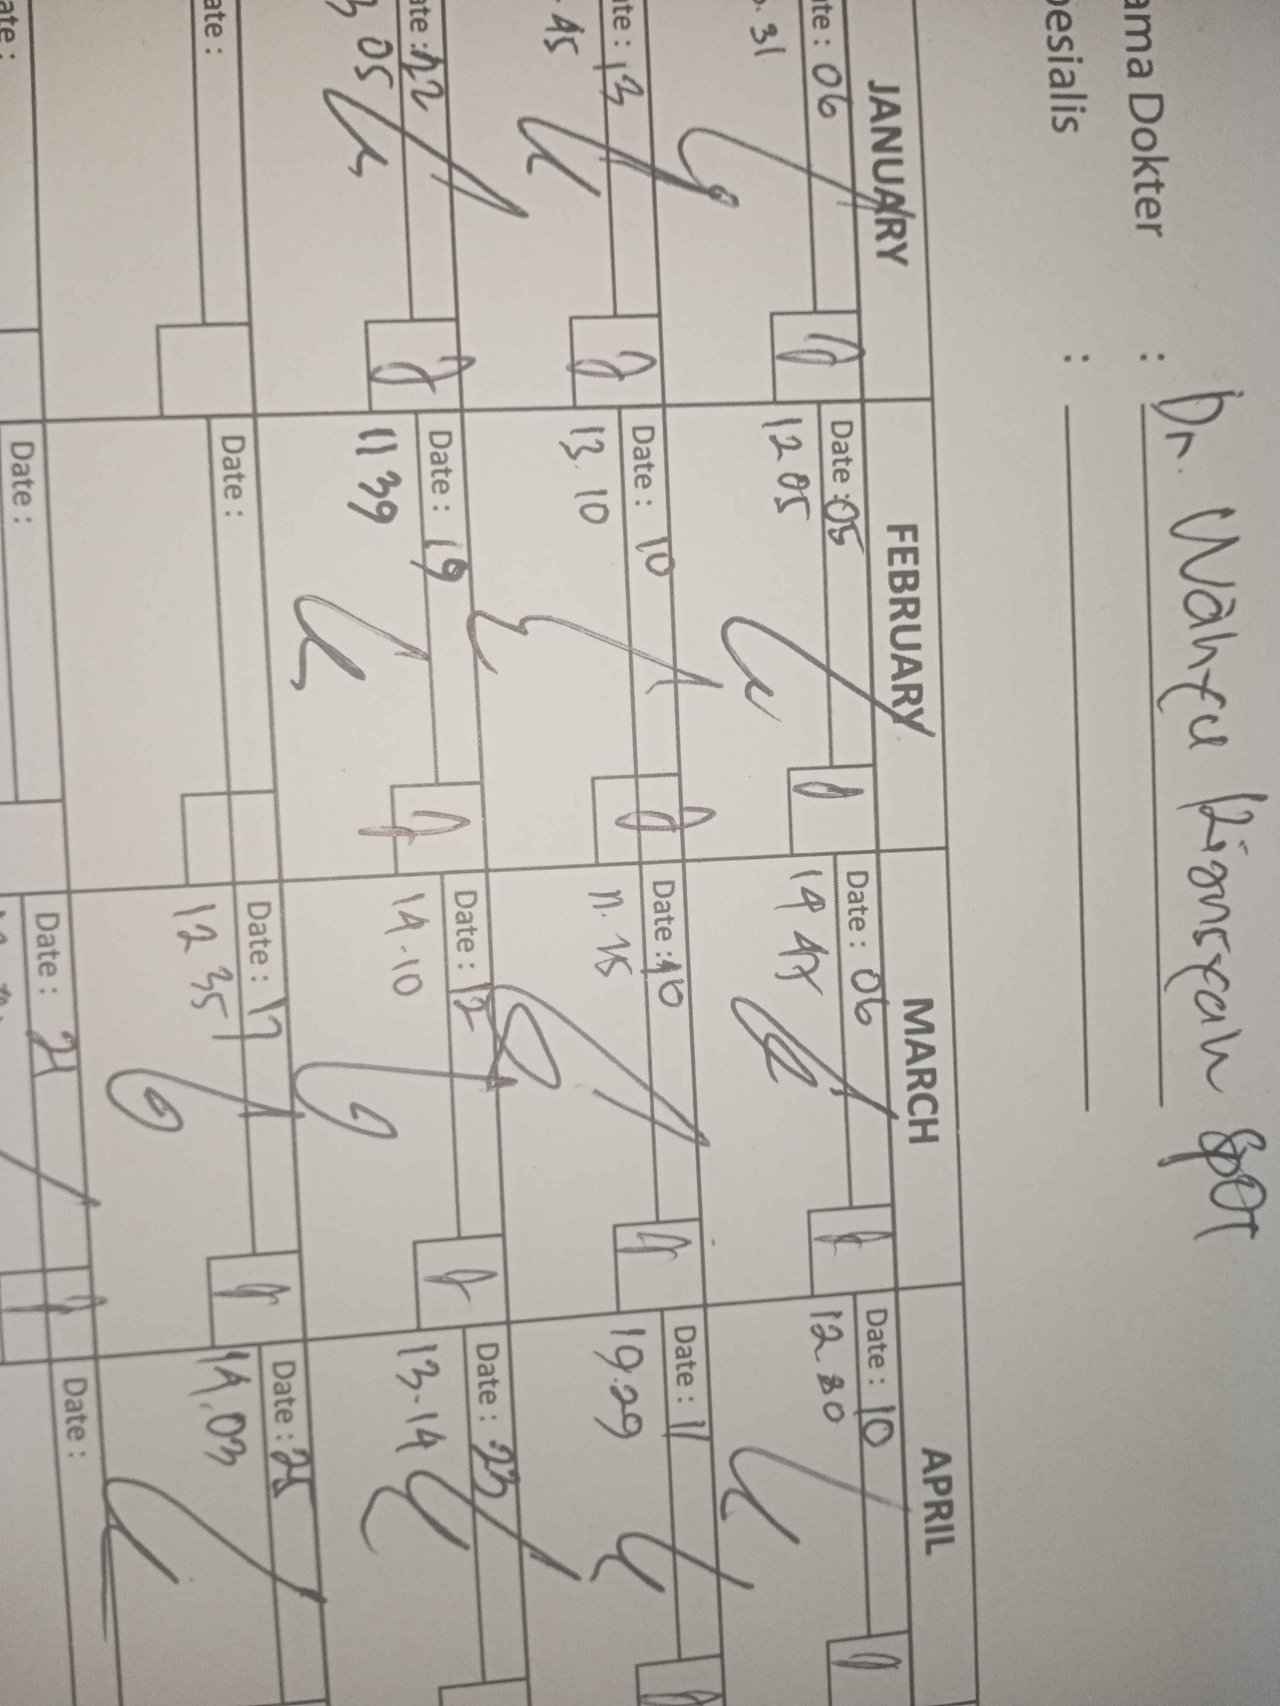 ama Dokter : Dr. Wahyu
esialis :
JANUARY FEBRUARY MARCH APRIL
ate : 06 Date : 05 Date : 06 Date : 10
.31 12 05 12 30
ate : 13 Date : 10 Date : 10 Date : 11
.45 13. 10 19.29
ate : 22 Date : 19 Date : 12 Date : 23
3 05 11 39 14.10 13.14
ate : Date : Date : 17 Date : 25
12 35 14.03
ate : Date : Date : 21 Date :